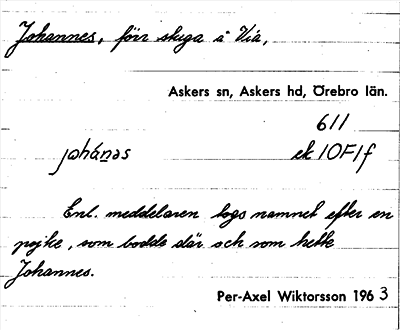 Johannes, förr stuga å Via,
Askers sn, Askers hd, Örebro län.
611
johánəs ek 10F1f
Enl. meddelaren togs namnet efter en
pojke, som bodde där och som hette
Johannes.
Per-Axel Wiktorsson 1963